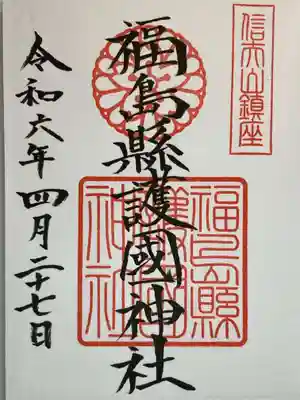 信夫山鎮座
福島縣護國神社
福島縣護國神社
令和六年四月二十七日